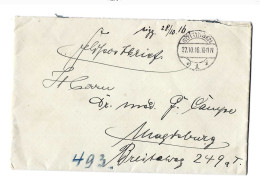 28/10.16
27.10.16.
Feldpostbrief
Herrn
Dr. med. F. Campe
Magdeburg
493. Breiteweg 249a I.